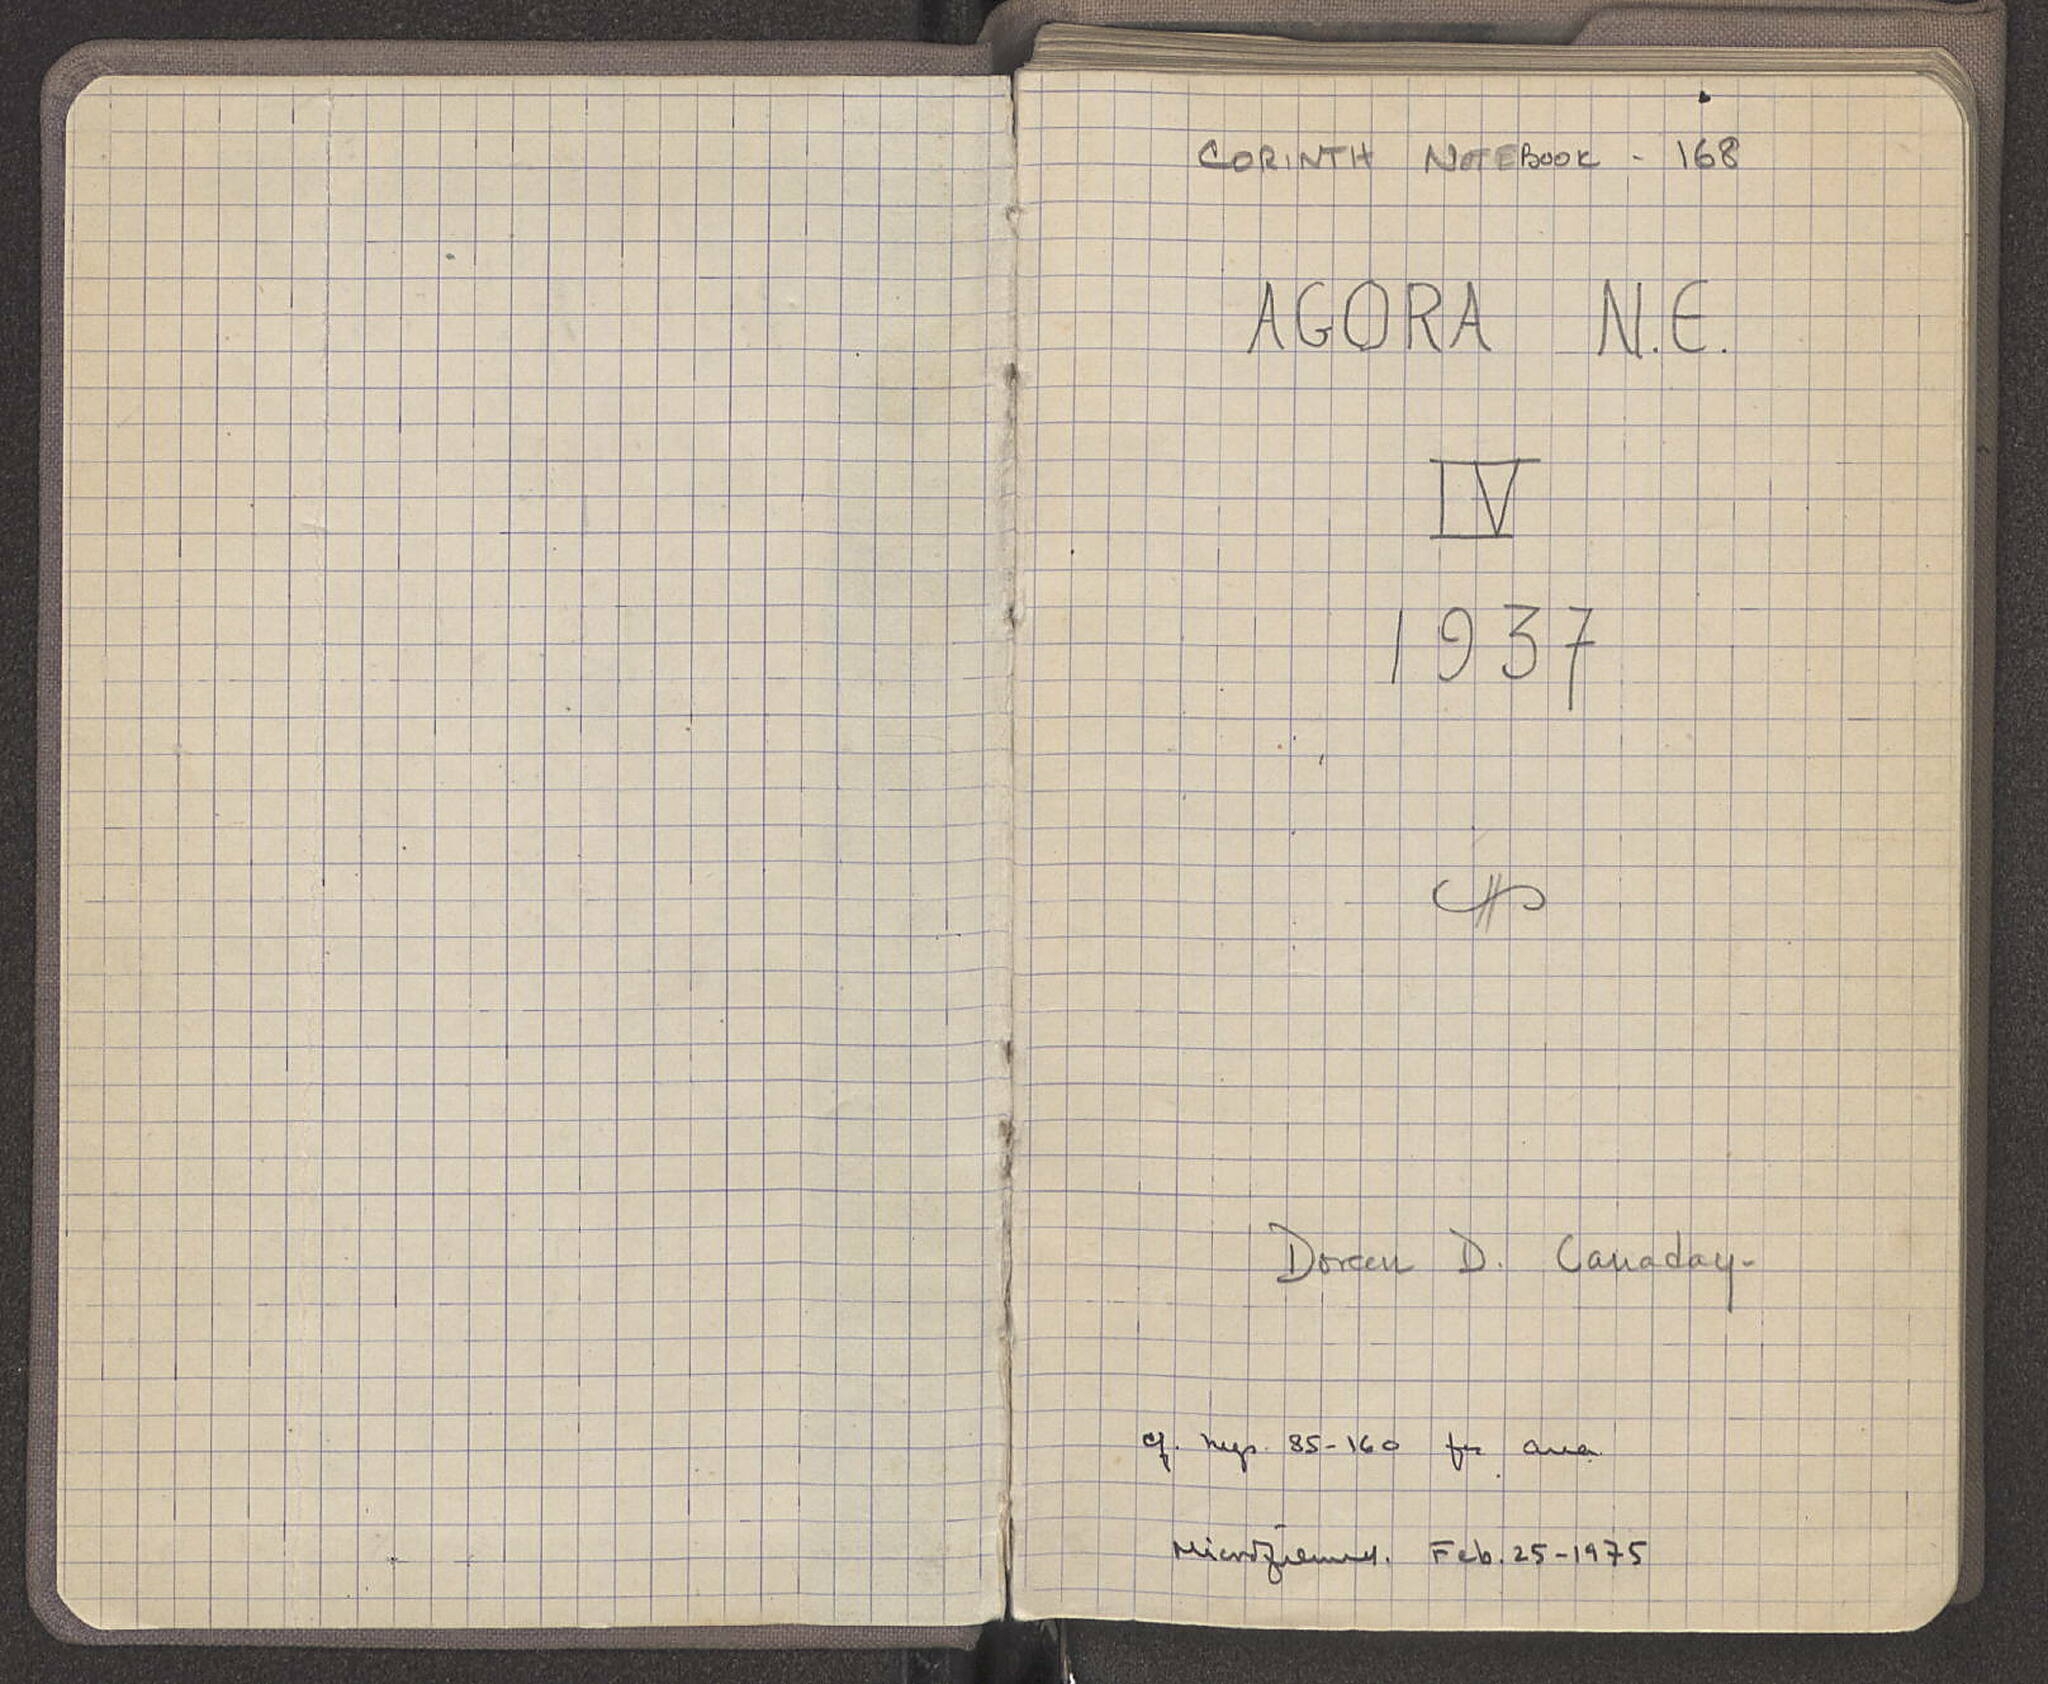 CORINTH NOTEBOOK - 168
AGORA N.E.
IV
1937
Doreen D. Canaday-
cf. negs. 85-160 for area
Microfilmed. Feb. 25-1975